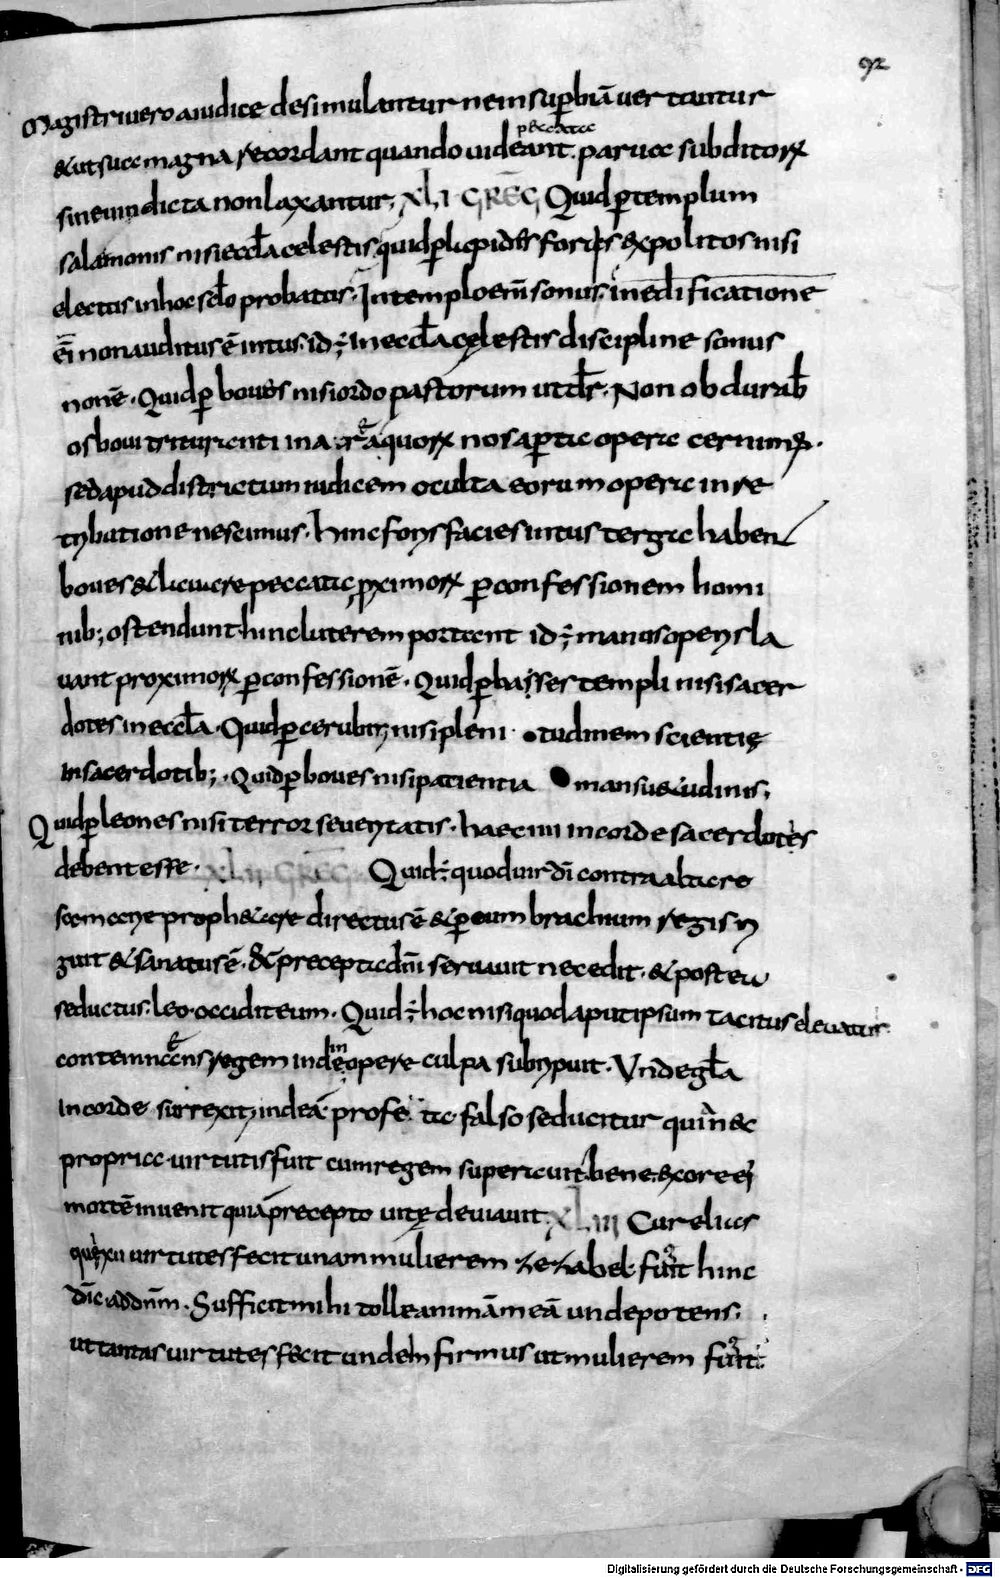 92
Magistri vero aiudice desimulantur nem supbiā vertantur
&ut sua magna recordant quando videant peccata parva subditorꝝ
sine vindicta non laxantur, XLI GREG Quid p templum
salamonis nisi eccl̄a celestis, quid p lapides fortes expolitos nisi
electus inhoc sclo probatus. In templo enī sonus inedificatione
eī non auditus ē intus. id ÷ In eccl̄a celestis discipline sonus
non ē. Quid p boves nisi ordo pastorum ut dr̄. Non obdurab
os bovi trituranti in area quorꝝ nos aperta opera cernimꝰ.
sed apud districtum iudicem occulta eorum opera in re
tributione nescimus. hinc foris facies intus terga haben
boves & lavare peccata pximorꝝ p confessionem homi
nib; ostendunt. hinc luterem portant id ÷ manus operis la
vant proximorꝝ p confessionē. Quid p basses templi nisi sacer
dotes in eccl̄a. Quid p cerubin, nisi pleni tudinem scientię
In sacerdotib;. Quid p boves nisi patientia mansu&udinis,
Quid p leones nisi terror severitatis. haec iiii in corde sacerdotes
debent esse. XLII GREG Quid ÷ quod vir dī contra altare
samarie proph&are directus ē & p eum brachium regis ri
guit & sanatus ē. & precepta dn̄i servavit nec edit. & postea
seductus. leo occidit eum. Quid ÷ hoc nisi quod aput ipsum tacitus elevatur
contemnens regem inde in opere culpa subripuit. Unde gl̄a
In corde surrexit, inde a profeta falso seducitur quia nec
propriae virtutis fuit cum regem superavit bene. ex ore ei
mortē invenit quia precepto vitę deviavit. XLIII Cur elias
qui xii virtutes fecit unam mulierem zezabel fugit hinc
dic addn̄m. Sufficit mihi tolle animā meā unde portens.
ut tantas virtutes fecit unde infirmus ut mulierem fugit.
Digitalisierung gefördert durch die Deutsche Forschungsgemeinschaft - DFG